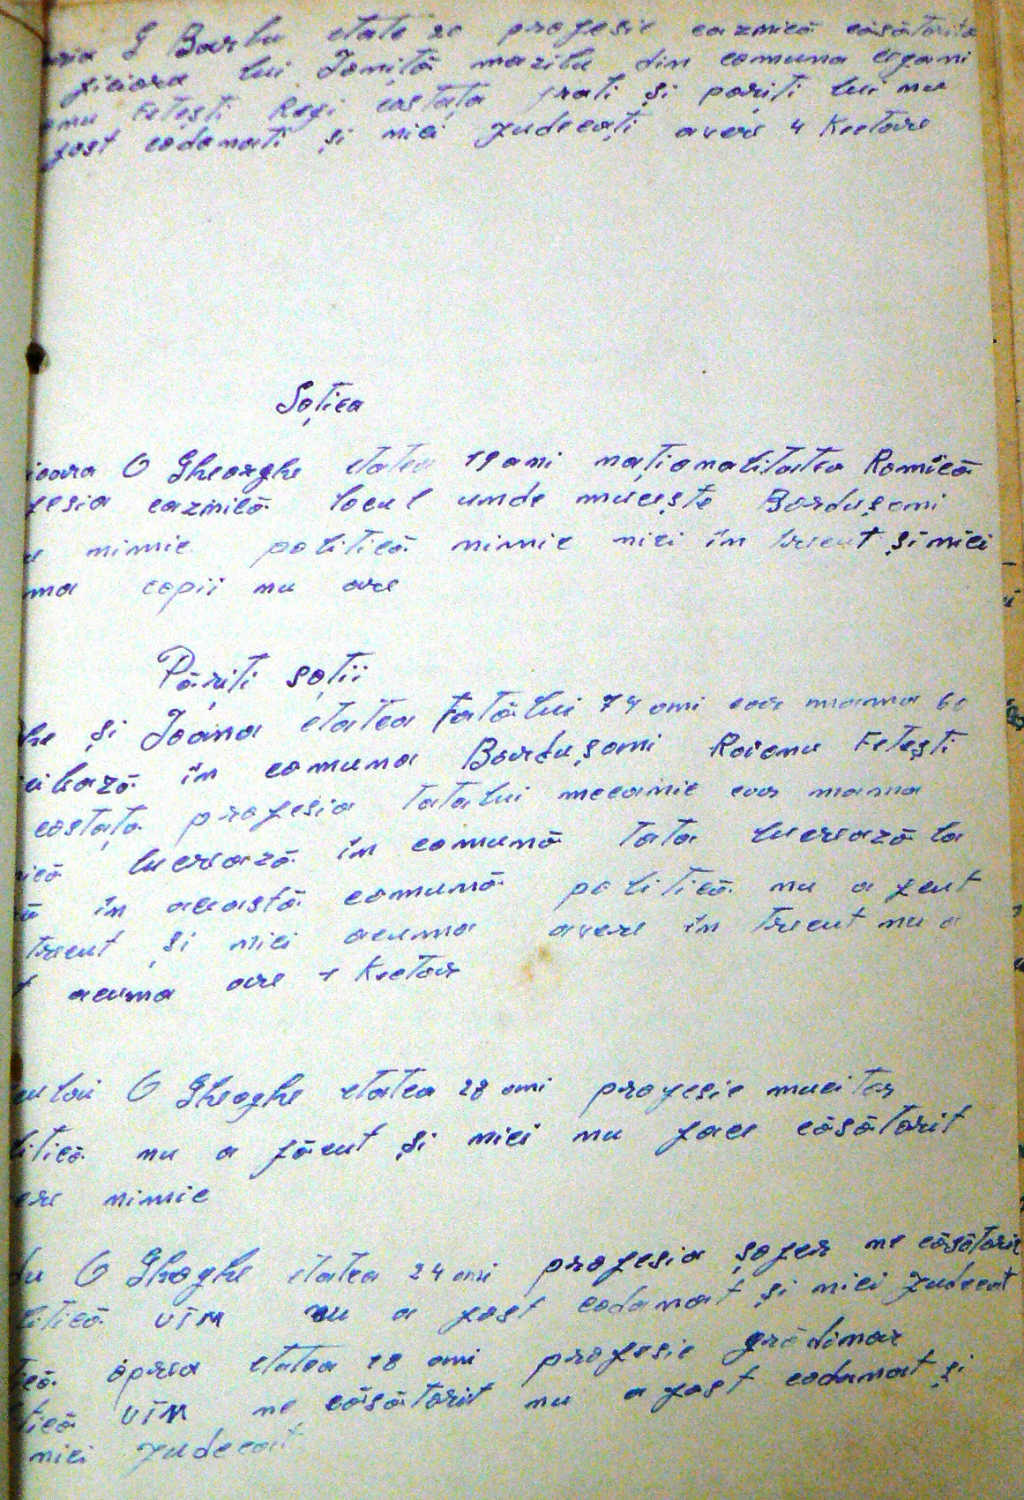 G Barbu etate 20 profesie cazmică căsătorita
ficiora lui Ioniță mazilu din comuna
Fetești Regi costața frati și pariți lui nu
fost codamati și nici judecați avere 4 Kectare
Soția
ioara G Gheorghe etatea 19 ani naționalitatea Romică
fesia cazmică locul unde mucește Bordușani
nimic politică nimic nici în trecut și nici
ma copii nu are
Păriti soții
he și Ioana etatea tatălui 74 ani ear mama 60
în comuna Bordușani Raionu Fetești
costața profesia tatalui mecanic ear mama
ică lucrază în comună tata lucriază la
în acastă comună politică nu a fcut
trecut și nici acuma avere în trecut nu a
acuma are 1 Kectar
G Gheoghe etatea 28 ani profesie mucitor
litică nu a făcut și nici nu face căsătorit
ere nimic
du G Ghoghe etatea 24 ani profesia șofer ne căsătorit
litică UTM nu a fost codamat și nici judecat
oprea etatea 18 ani profesie grădinar
tică UTM ne căsătorit nu a fost codamat și
nici judecat